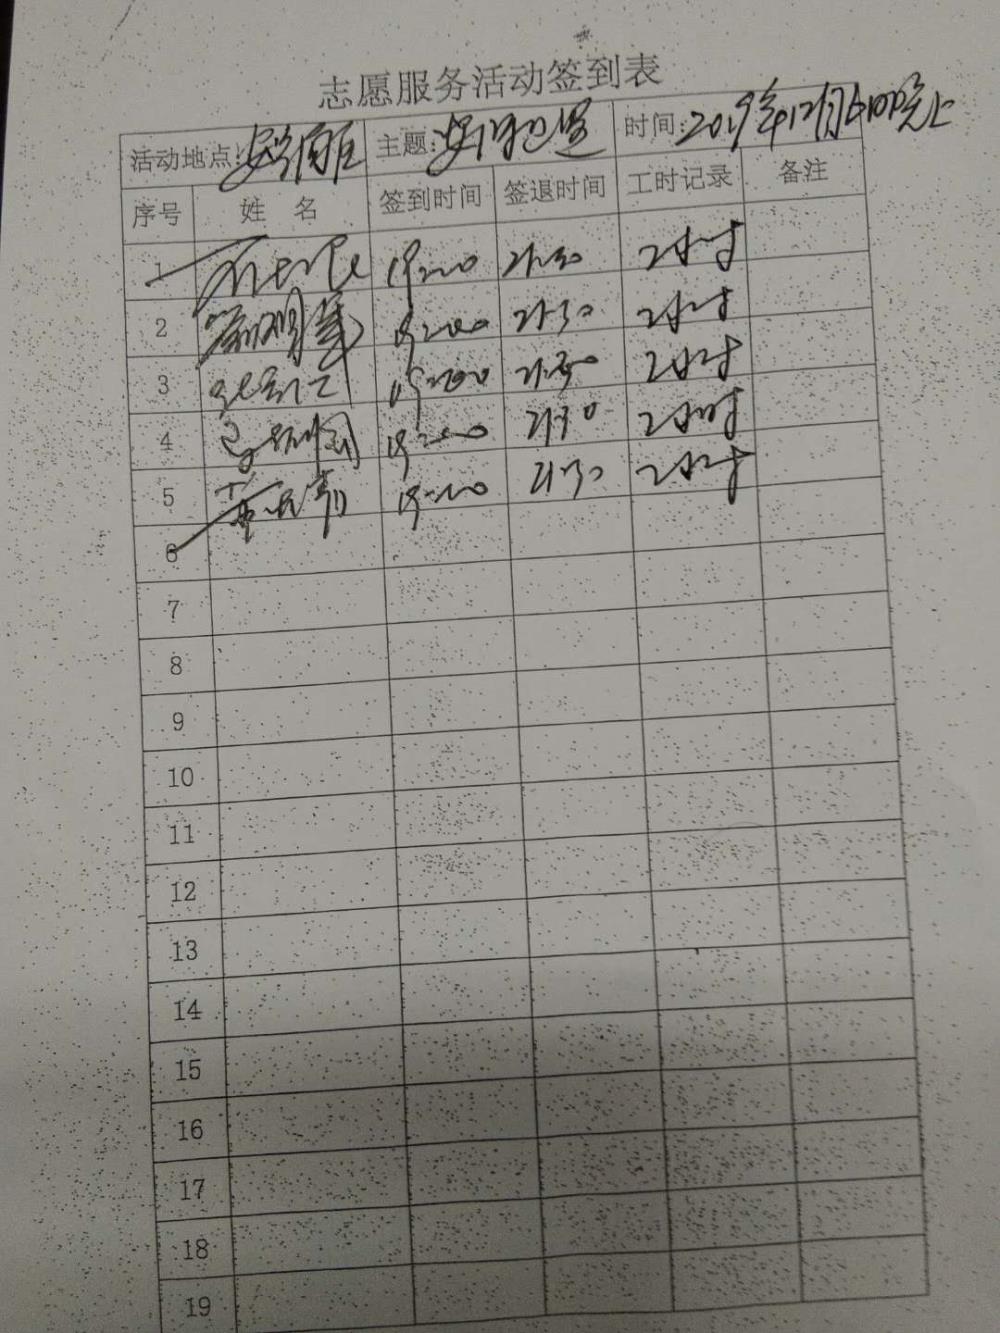 志愿服务活动签到表
活动地点: 主题: 时间:2019年12月6日晚上
序号 姓名 签到时间 签退时间 工时记录 备注
1 19:00 21:30 2小时
2 19:00 21:30 2小时
3 19:00 21:30 2小时
4 19:00 21:30 2小时
5 19:00 21:30 2小时
6
7
8
9
10
11
12
13
14
15
16
17
18
19